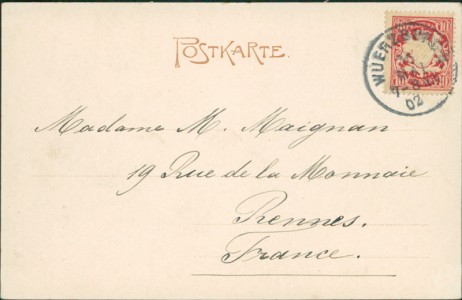 POSTKARTE.
WUERZBURG
02
Madame M. Maignan
19 Rue de la Monnaie
Rennes.
France.